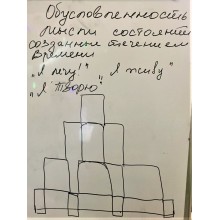 Обусловленность
мысли состоянием
созданные течением
времени
"Я лечу!" "Я живу"
"Я творю"